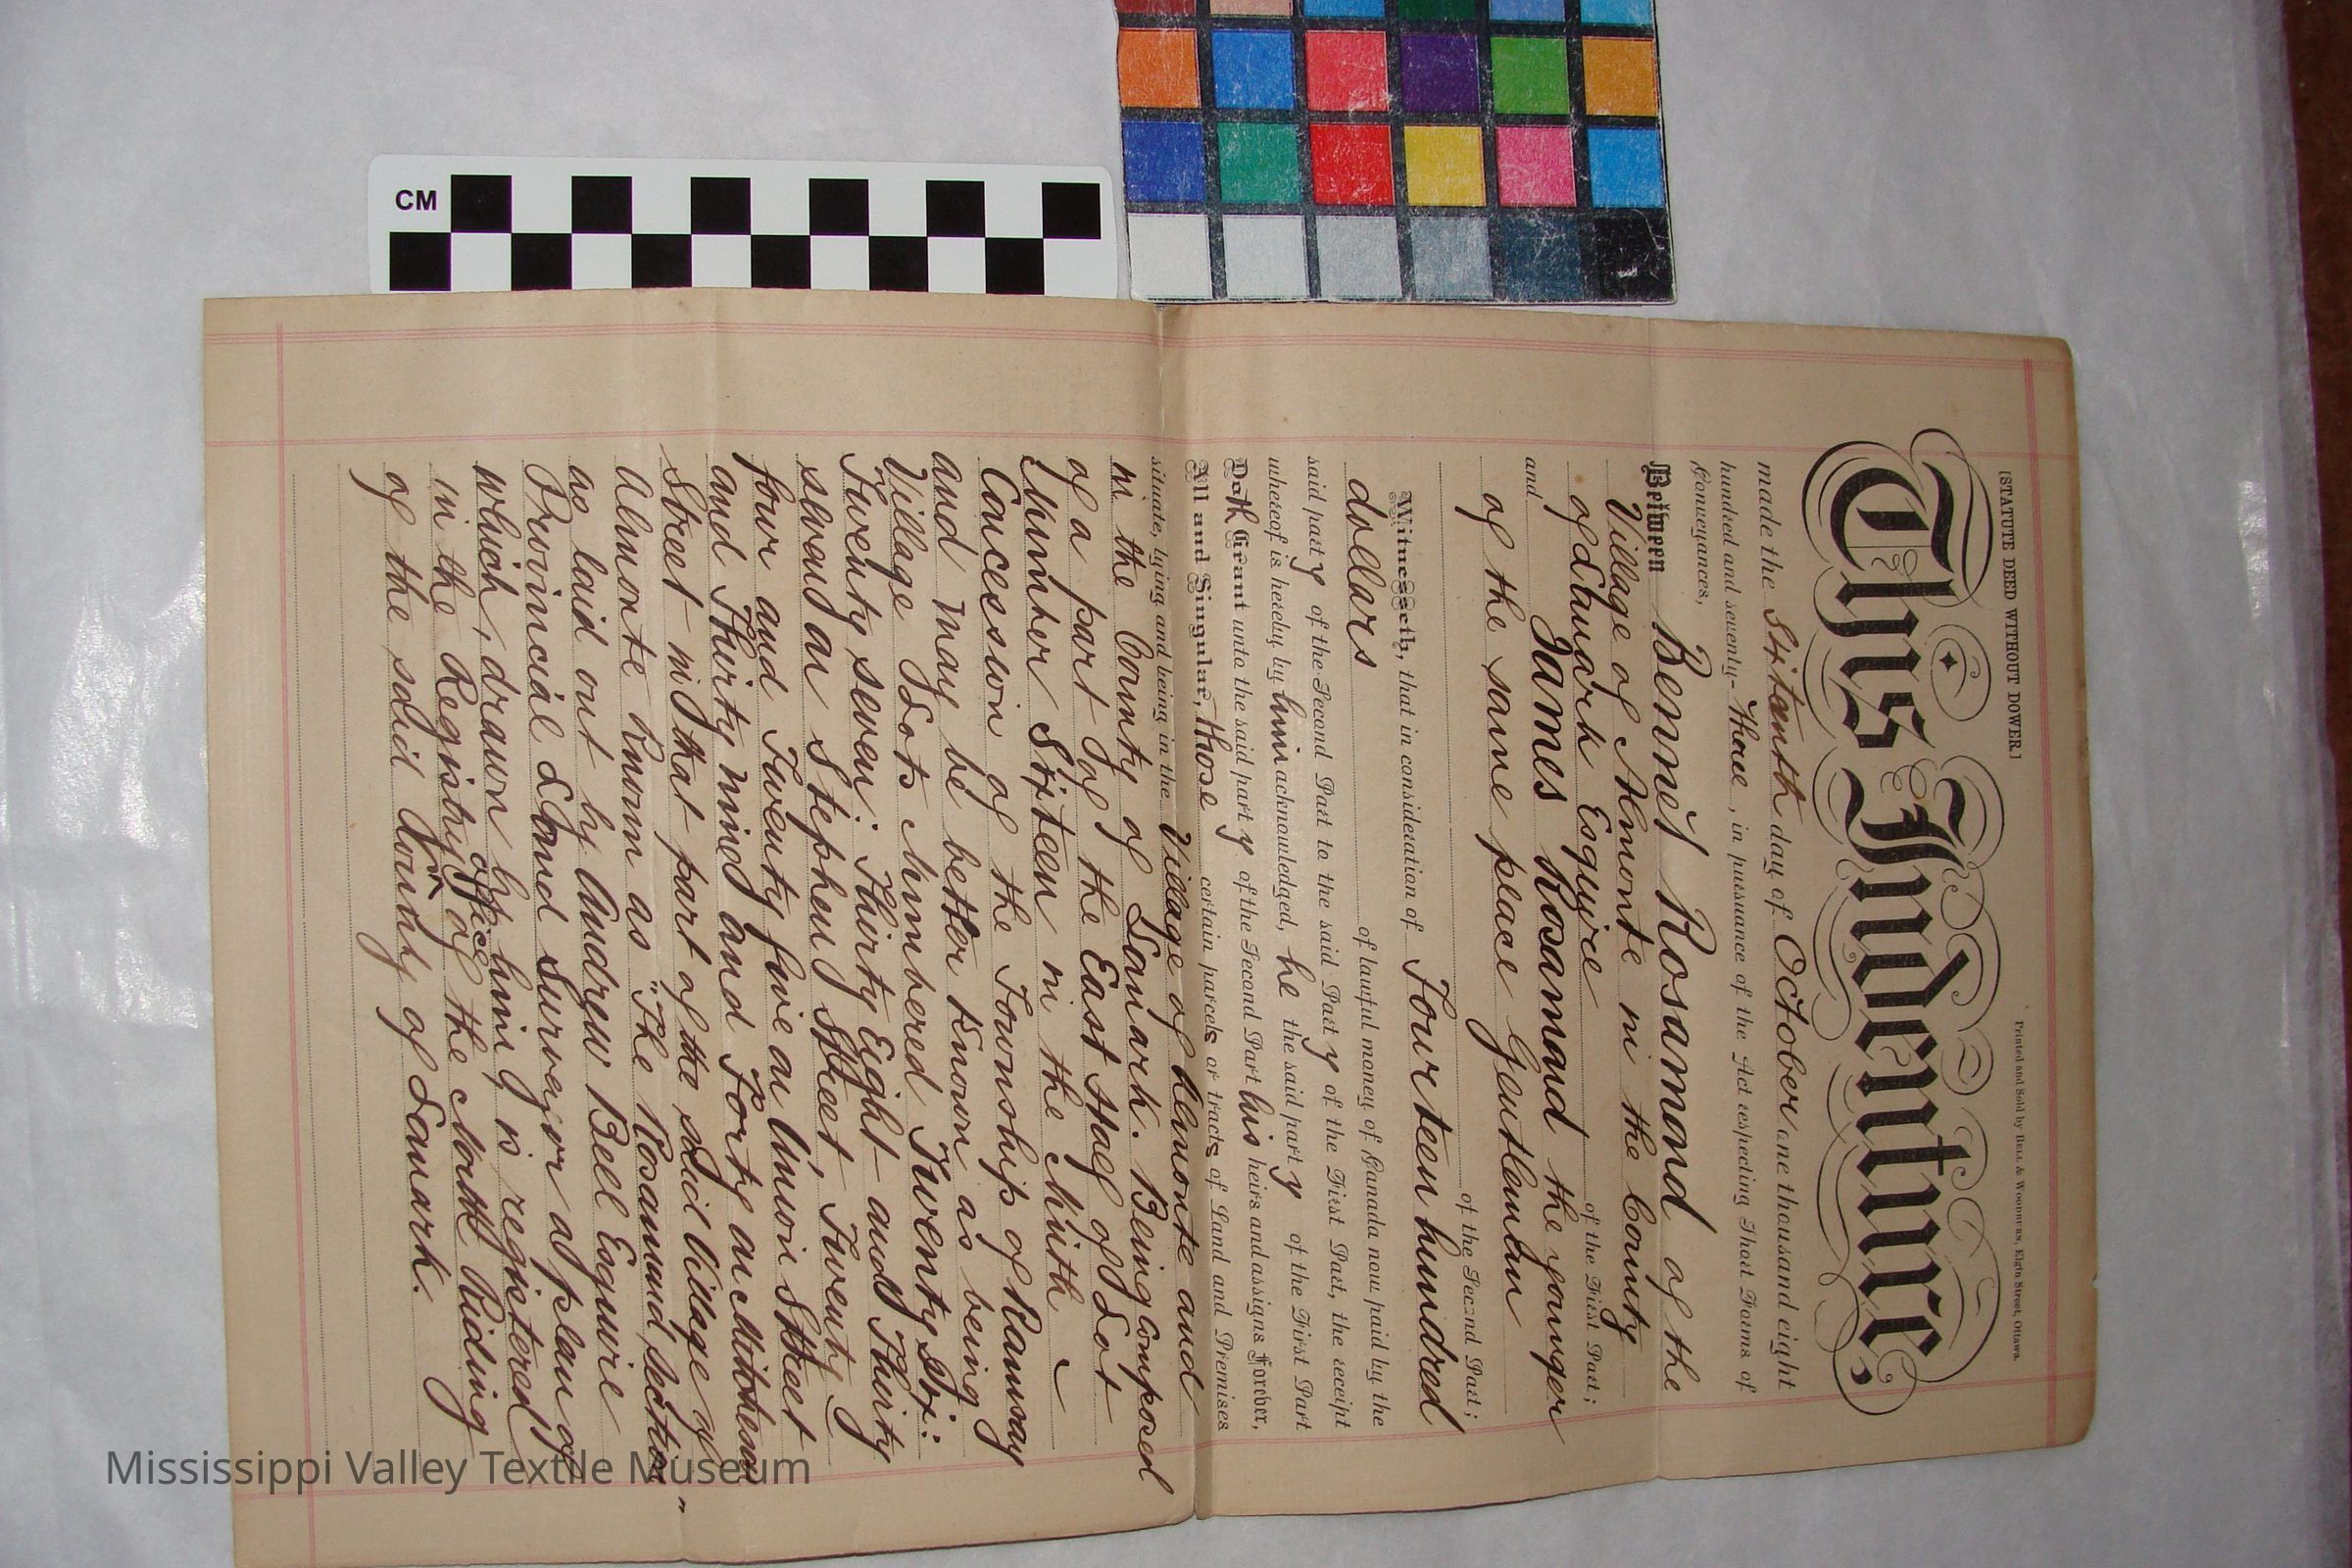 [STATUTE DEED WITHOUT DOWER.] Printed and Sold by BELL & WOODBURN, Elgin Street, Ottawa.
This Indenture,
made the Sixteenth day of October one thousand eight
hundred and seventy-Three, in pursuance of the Act respecting Short Forms of
Conveyances,
Between Bennet Rosamond of the
Village of Almonte in the County
of Lanark Esquire of the First Part;
and James Rosamond the younger
of the same place Gentleman
of the Second Part;
Witnesseth, that in consideration of Fourteen hundred
dollars of lawful money of Canada now paid by the
said party of the Second Part to the said Party of the First Part, the receipt
whereof is hereby by him acknowledged, he the said party of the First Part
Doth Grant unto the said party of the Second Part his heirs and assigns Forever,
All and Singular, those certain parcels or tracts of Land and Premises
situate, lying and being in the Village of Almonte and
in the County of Lanark. Being composed
of a part of the East Half of Lot
Number Sixteen in the Ninth
Concession of the Township of Ramsay
and may be better known as being
Village Lots Numbered Twenty Six:
Twenty seven: Thirty Eight and Thirty
seven on Stephen Street, Twenty
four and Twenty five on Union Street
and Thirty nine and Forty on Mitcheson
Street in that part of the said Village of
Almonte known as "The Rosamond Section"
as laid out by Andrew Bell Esquire
Provincial Land Surveyor a plan of
which, drawn by him is registered
in the Registry office of the North Riding
of the said County of Lanark.
CM
Mississippi Valley Textile Museum